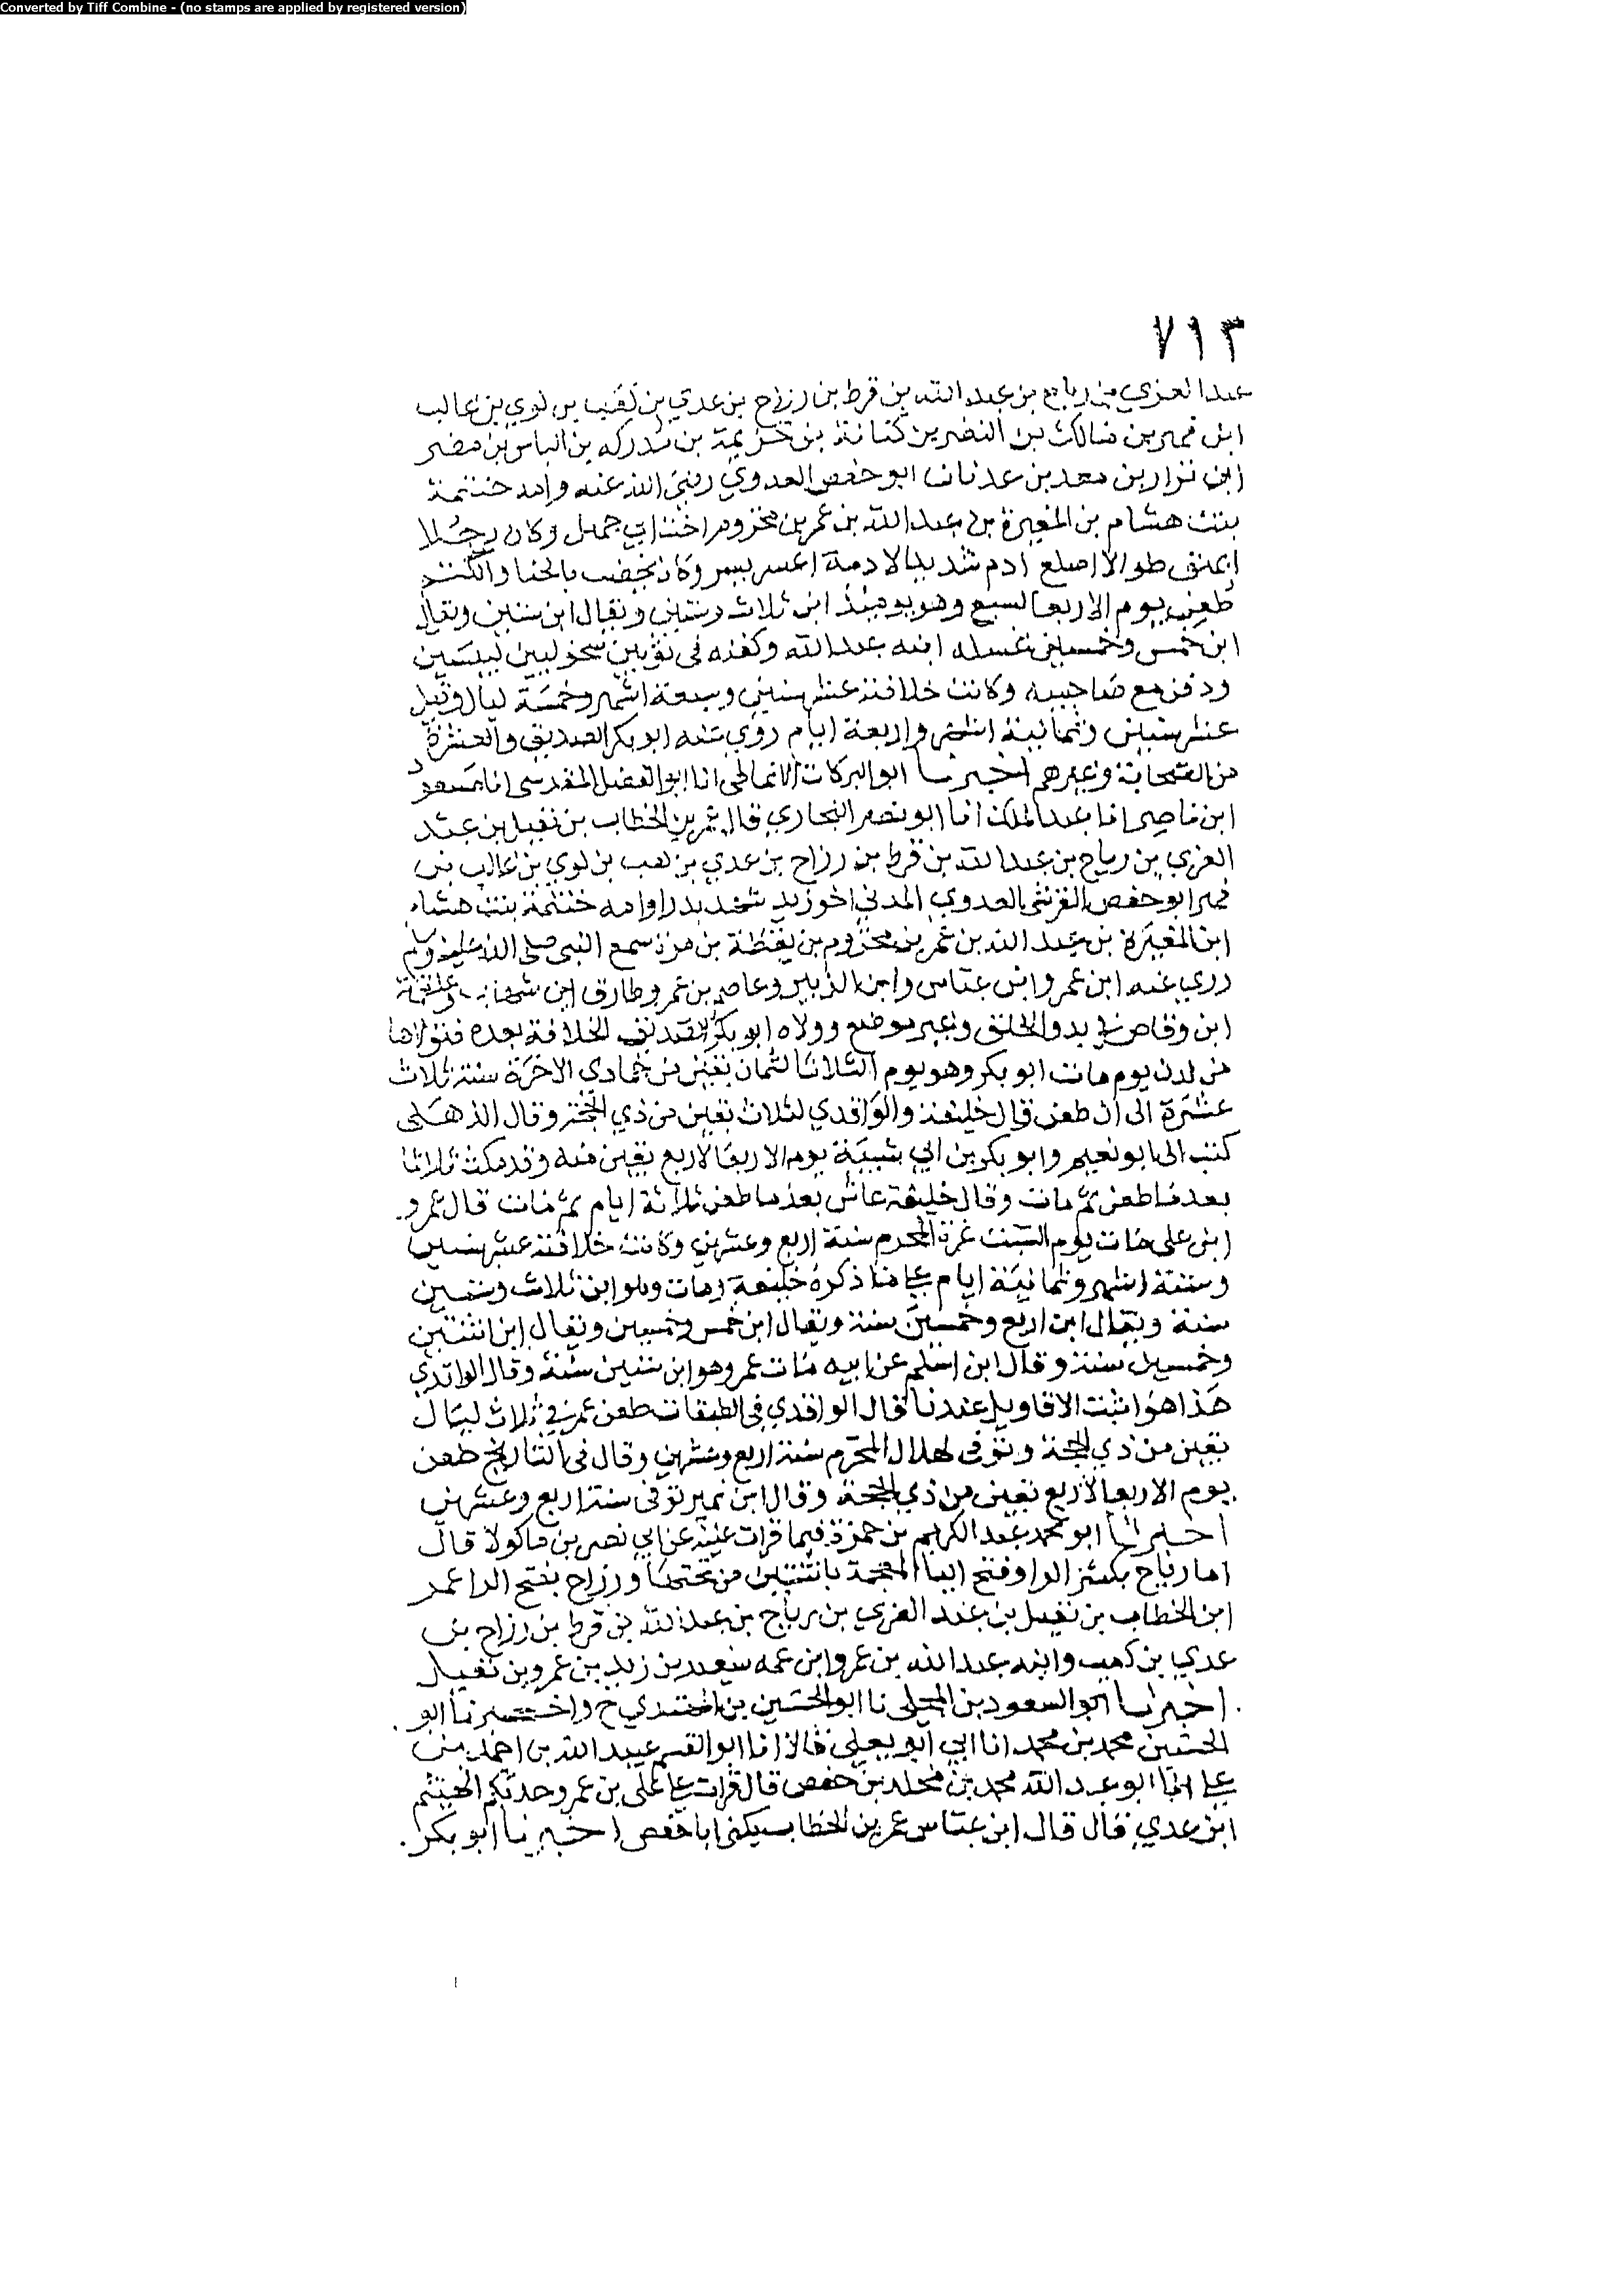 Converted by Tiff Combine - (no stamps are applied by registered version)
٧١٣
عبد العزي بن رباح بن عبد الله بن قرط بن رزاح بن عدي بن كعب بن لوي بن غالب
ابن فهر بن مالك بن النضر بن كنانة بن خزيمة بن مدركه بن الياس بن مضر
ابن نزار بن معد بن عدنان ابو حفص العدوي رضي الله عنه وامه حنتمة
بنت هشام بن المغيرة بن عبد الله بن عمر بن مخزوم اخت ابي جهل وكان رجلا
طوالا اصلع ادم شديد الادمة اعسر يسر وكان يخضب بالحنا والكتم
طعن يوم الاربعا لسبع وهو يوميذ ابن ثلاث وستين ويقال ابن ستين ويقال
ابن خمس وخمسين غسله ابنه عبد الله وكفنه في ثوبين سحوليين لبيسين
ودفن مع صاحبيه وكانت خلافته عشر سنين وسبعة اشهر وخمسة ليال وقيل
عشر سنين وثمانية اشهر واربعة ايام روي عنه ابو بكر الصديق والعشرة
من الصحابة وغيرهم اخبرنا ابو البركات الانماطي انا ابو الفضل المقدسي انا مسعود
ابن ناصر انا عبد الملك انا ابو نصر البخاري قال عمر بن الخطاب بن نفيل بن عبد
العزي بن رياح بن عبد الله بن قرط بن رزاح بن عدي بن كعب بن لوي بن غالب بن
فهر ابو حفص القرشي العدوي المدني اخو زيد شهد بدرا وامه حنتمة بنت هشام
ابن المغيرة بن عبد الله بن عمر بن مخزوم بن يقظة بن مرة سمع النبي صلى الله عليه وسلم
روي عنه ابن عمر وابن عباس وابن الزبير وعاصم بن عمر وطارق ابن شهاب وعلقمة
ابن وقاص في بدو الخلق وغير موضع وولاه ابو بكر الصديق الخلافة بعده فتولاها
من لدن يوم مات ابو بكر وهو يوم الثلاثا لثمان بقين من جمادي الاخرة سنة ثلاث
عشرة الى ان طعن قال خليفة والواقدي لثلاث بقين من ذي الحجة وقال الذهلي
كتب الي ابو نعيم وابو بكر بن ابي شيبة يوم الاربعا لاربع بقين منه وقد مكث ثلاثا
بعد ما طعن ثم مات وقال خليفة عاش بعد ما طعن ثلاثة ايام ثم مات قال عمرو
ابن علي مات يوم السبت غرة المحرم سنة اربع وعشرين وكانت خلافته عشر سنين
وستة اشهر وثمانية ايام علي ما ذكره خليفة ومات وهو ابن ثلاث وستين
سنة ويقال ابن اربع وخمسين سنة ويقال ابن خمس وخمسين ويقال ابن اثنتين
وخمسين سنة وقال ابن اسلم عن ابيه مات عمر وهو ابن ستين سنة وقال الواقدي
هذا هو اثبت الاقاويل عندنا قال الواقدي في الطبقات طعن عمر في ثلاث ليال
بقين من ذي الحجة وتوفى لهلال المحرم سنة اربع وعشرين وقال في التاريخ طعن
يوم الاربعا لاربع بقين من ذي الحجة وقال ابن نمير توفى سنة اربع وعشرين
اخبرنا ابو محمد عبد الكريم بن حمزة فيما قرات عليه عن ابي نصر بن ماكولا قال
اما رياح بكسر الرا وفتح اليا المعجمة باثنتين من تحتها ورزاح بفتح الرا عمر
ابن الخطاب بن نفيل بن عبد العزي بن رياح بن عبد الله بن قرط بن رزاح بن
عدي بن كعب وابنه عبد الله بن عمر وابن عمه سعيد بن زيد بن عمرو بن نفيل
اخبرنا ابو السعود بن المجلي نا ابو الحسين بن المهتدي ح واخبرنا ابو
الحسين محمد بن محمد انا ابي ابو يعلى قالا انا ابو القسم عبيد الله بن احمد بن
علي انا ابو عبد الله محمد بن مخلد بن حفص قال قرات علي علي بن عمرو حدثكم الهيثم
ابن عدي قال قال ابن عباس عمر بن الخطاب يكنى ابا حفص اخبرنا ابو بكر